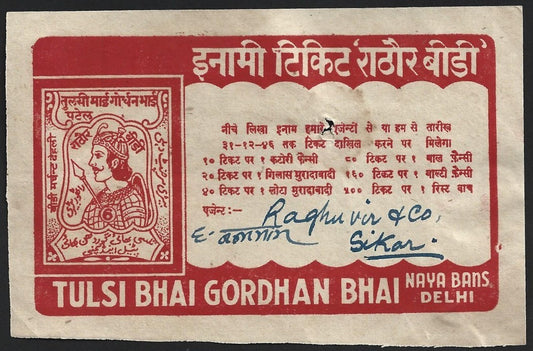 इनामी टिकिट 'राठौर बीड़ी'
तुलसी भाई गोर्धन भाई
पटेल
राठौर बीड़ी
बीड़ी मर्चेन्ट देहली
नीचे लिखा इनाम हमारे एजेन्टों से या हम से तारीख
३१-१२-४६ तक टिकट दाखिल करने पर मिलेगा।
१० टिकट पर १ कटोरी फ़ैन्सी ८० टिकट पर १ थाल फ़ैन्सी
२० टिकट पर १ गिलास मुरादाबादी १६० टिकट पर १ बाल्टी फ़ैन्सी
४० टिकट पर १ लोटा मुरादाबादी ५०० टिकट पर १ रिस्ट वाच
एजेन्ट :—
Raghuvir & Co,
Sikar.
TULSI BHAI GORDHAN BHAI NAYA BANS
DELHI